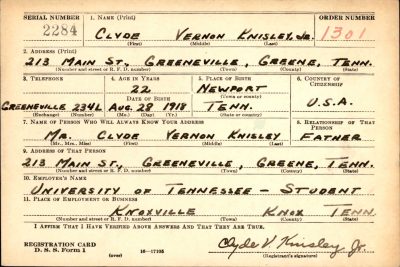 SERIAL NUMBER 1. NAME (Print) ORDER NUMBER
2284 CLYDE VERNON KNISLEY, JR. 1301
(First) (Middle) (Last)
2. ADDRESS (Print)
213 MAIN ST., GREENEVILLE, GREENE, TENN.
(Number and street or R. F. D. number) (Town) (County) (State)
3. TELEPHONE 4. AGE IN YEARS 5. PLACE OF BIRTH 6. COUNTRY OF CITIZENSHIP
22 NEWPORT
DATE OF BIRTH (Town or county)
GREENEVILLE 234L AUG. 28 1918 TENN. U.S.A.
(Exchange) (Number) (Mo.) (Day) (Yr.) (State or country)
7. NAME OF PERSON WHO WILL ALWAYS KNOW YOUR ADDRESS 8. RELATIONSHIP OF THAT PERSON
MR. CLYDE VERNON KNISLEY FATHER
(Mr., Mrs., Miss) (First) (Middle) (Last)
9. ADDRESS OF THAT PERSON
213 MAIN ST., GREENEVILLE, GREENE, TENN.
(Number and street or R. F. D. number) (Town) (County) (State)
10. EMPLOYER'S NAME
UNIVERSITY OF TENNESSEE - STUDENT
11. PLACE OF EMPLOYMENT OR BUSINESS
KNOXVILLE KNOX TENN.
(Number and street or R. F. D. number) (Town) (County) (State)
I AFFIRM THAT I HAVE VERIFIED ABOVE ANSWERS AND THAT THEY ARE TRUE.
REGISTRATION CARD
D. S. S. Form 1 (over) 16—17105 Clyde V. Knisley Jr.
(Registrant's signature)